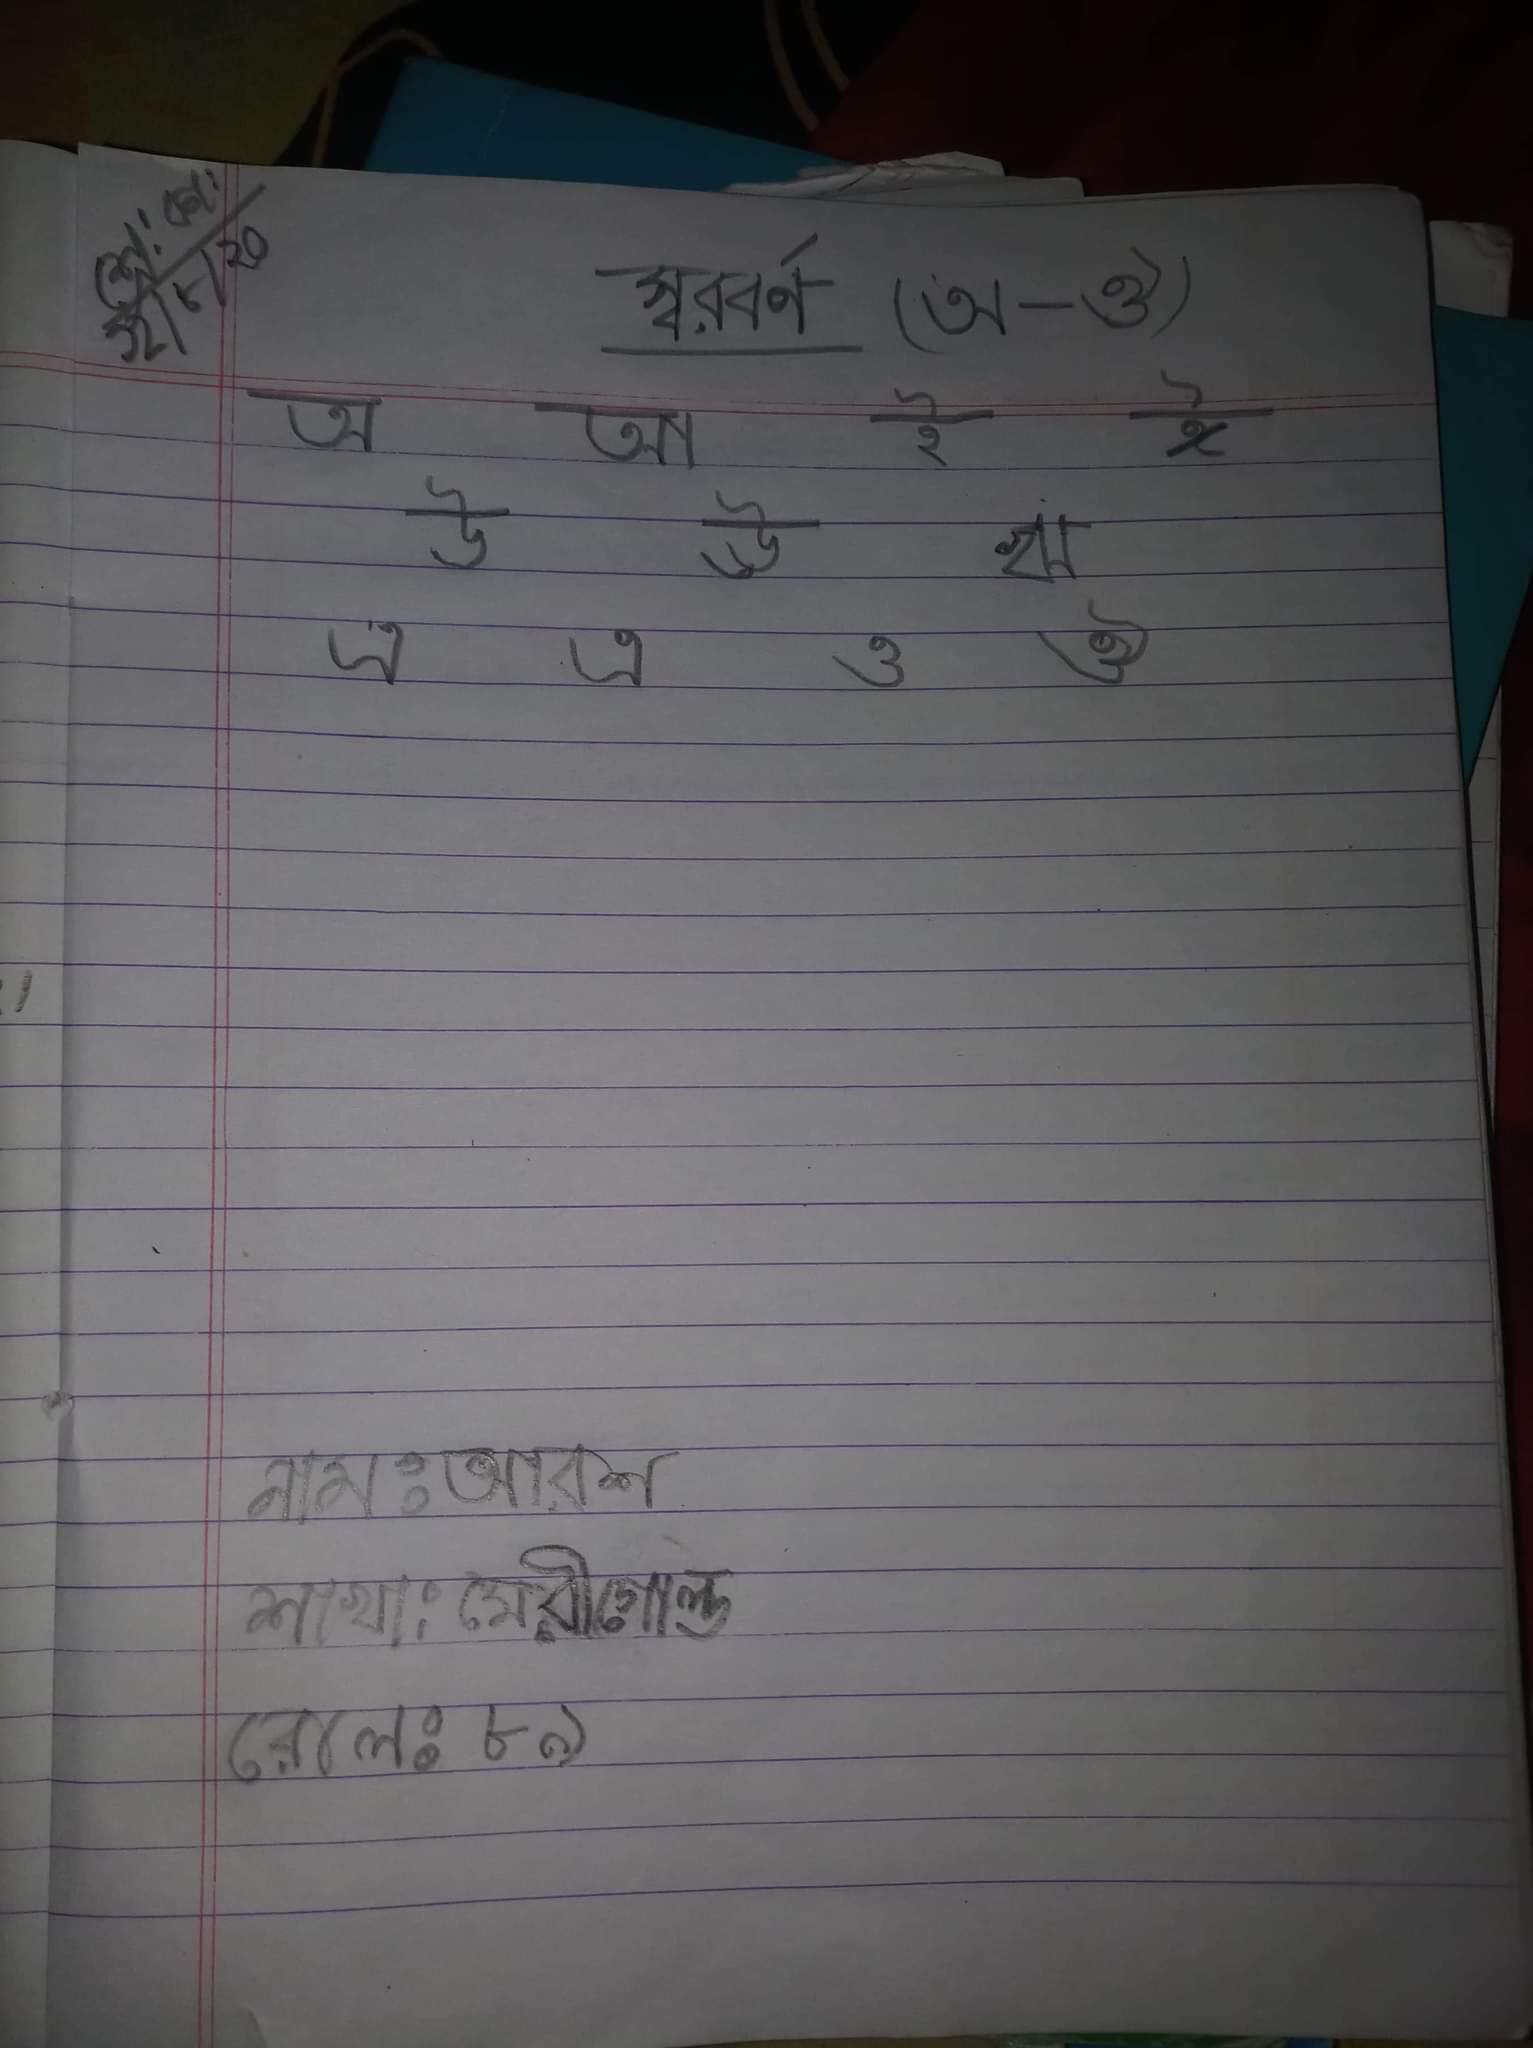 শ্রে: কা:
২২/৮/২০
স্বরবর্ণ (অ-ঔ)
অ আ ই ঈ
উ ঊ ঋ
এ ঐ ও ঔ
নামঃ আরশ
শাখা: মেরীগোল্ড
রোলঃ ৮৯